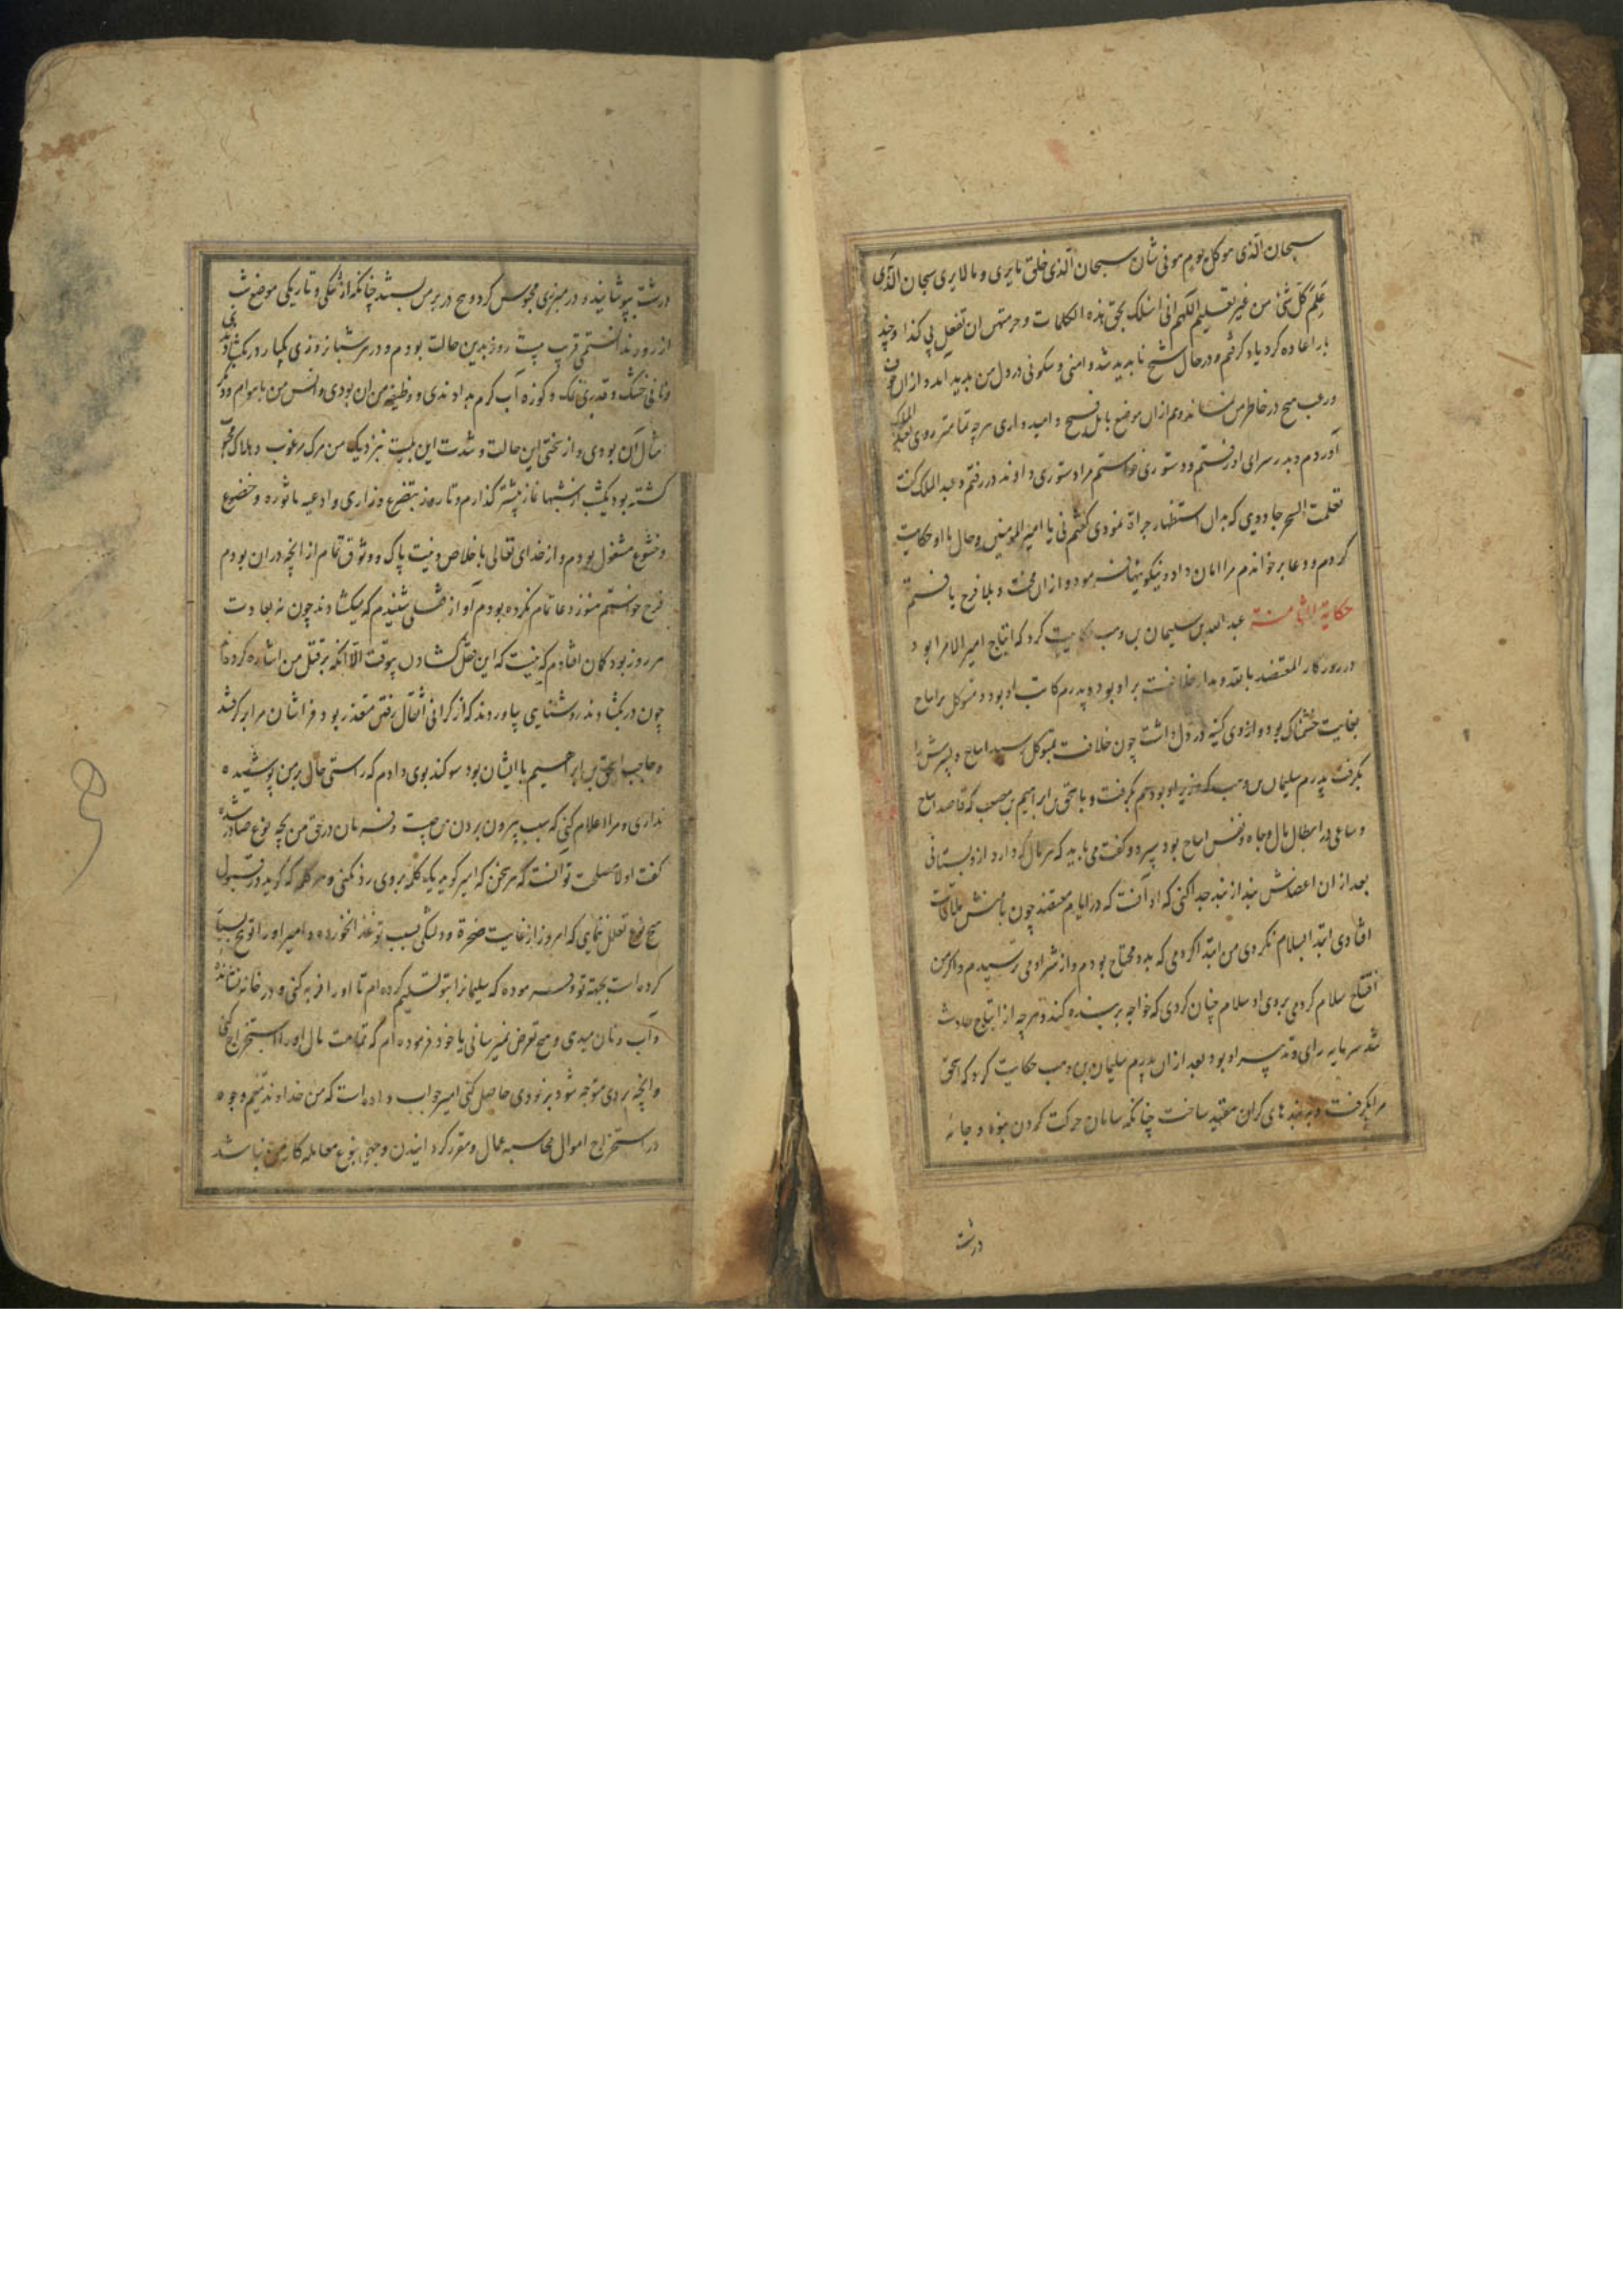 سبحان الذی هو کل یوم هو فی شان سبحان الذی خلق ما یری و ما لا یری سبحان الذی
علم کل شئ من غیر تعلیم اللهم انی اسئلک بحق هذه الکلمات و حرمتهن ان تفعل بی کذا و چند
بار اعاده کرد یاد کرفتم و در حال شیخ ناپدید شد و امنی و سکونی در دل من پدید آمد و ازان خوف
و رعب هیچ در خاطر من نماند و هم ازان موضع بامل فسیح و امیدواری هر چه تمامتر روی بعبد الملک
آوردم و بدر سرای او رفتم و دستوری خواستم مرا دستوری دادند در رفتم و عبد الملک گفت
تعلمت السحر جادویی که بدان استظهار جراة نمودی گفتم نی یا امیر المومنین و حال با او حکایت
کردم و دعا بر خواندم مرا امان داد و نیکوییها فرمود و ازان محنت و بلا فرج یافتم
حکایة الثامنة عبد الله بن سلیمان بن وهب حکایت کرد که ایتاخ امیر الامرا بود
در روزکار المعتضد بالله و مدار خلافت بر او بود و پدرم کاتب او بود و متوکل بر ایتاخ
بغایت خشمناک بود و ازوی کینه در دل داشت چون خلافت بمتوکل رسید ایتاخ و پسرش را
بکرفت پدرم سلیمان بن وهب که وزیر او بود هم بکرفت و باسحق بن ابراهیم بن مصعب که قاصد ایتاخ
و ساعی در ابطال مال و جاه و نفس ایتاخ بود سپرد و کفت می باید که هر مال که دارد ازو بستانی
بعد ازان اعضاش بند از بند جدا کنی که او آنست که در ایام معتضد چون با منش ملاقات
افتادی ابتدا بسلام نکردی من ابتدا کردمی که بدو محتاج بودم و از شر او می ترسیدم و اکر من
افتتاح سلام کردمی بروی او سلام چنان کردی که خواجه بر بنده کند و هر چه از ایتاخ حادث
شد سرمایه رای و تدبیر او بود بعد ازان پدرم سلیمان بن وهب حکایت کرد که اسحق
مرا بکرفت و به بندهای کران مقید ساخت چنانکه سامان حرکت کردن نبود و جامه
درشت
درشت بپوشانید و در مبرزی محبوس کرد و پنج در بر من ببستند چنانکه از تنکی و تاریکی موضع شب
از روز ندانستمی قریب بیست روز بدین حالت بودم و در هر شبانروزی یکبار در بکشادندی
و نانی خشک و قدری نمک و کوزه آب کرم بدادندی و وظیفه من آن بودی و انس من با هوام و
امثال آن بودی و از سختی این حالت و شدت این بلیت نزدیک من مرک مرغوب و هلاک
کشته بود یکشب از شبها نماز بیشتر کذاردم و تا روز بتضرع و زاری و ادعیه ماثوره و خضوع
و خشوع مشغول بودم و از خدای تعالی باخلاص و نیت پاک و وثوق تمام از انچه دران بودم
فرج خواستم هنوز دعا تمام نکرده بودم آواز قفل شنیدم که میکشادند چون نه بعادت
هر روز بود کمان افتادم که نیست که این قفل کشادن بیوقت الا آنکه بر قتل من اشاره کرده
چون در بکشادند روشنایی بیاوردند که از کرانی اثقال رفتن متعذر بود فراشان مرا بر کرفتند
و حاجب اسحق بن ابراهیم با ایشان بود سوکند بوی دادم که راستی حال بر من پوشیده
نداری و مرا اعلام کنی که سبب بیرون بردن من چیست و فرمان در حق من بچه نوع صادر شده
گفت اولا مصلحت تو آنست که هر سخن که امیر کوید یک کلمه بروی رد نکنی و هر کلمه که کوید در قبول
هیچ نوع تعلل ننمایی که امروز از غایت ضجرة و دلتنکی بسبب تو غذا نخورده و امیر او را توبیخ بسیار
کرده است بجهته تو و فرموده که سلیمانرا بتو تسلیم کرده ام تا او را فربه کنی و در خانه نشانده
و آب و نان میدی و هیچ تعرض نمیرسانی یا خود فرموده ام که تمامت مال او را استخراج کنی
و انچه بر وی متوجه شود بزودی حاصل کنی امیر جواب داده است که من خداوند تیغم و
در استخراج اموال محاسبه عمال و مقرر کردانیدن وجوه نوع معامله کار من نباشد